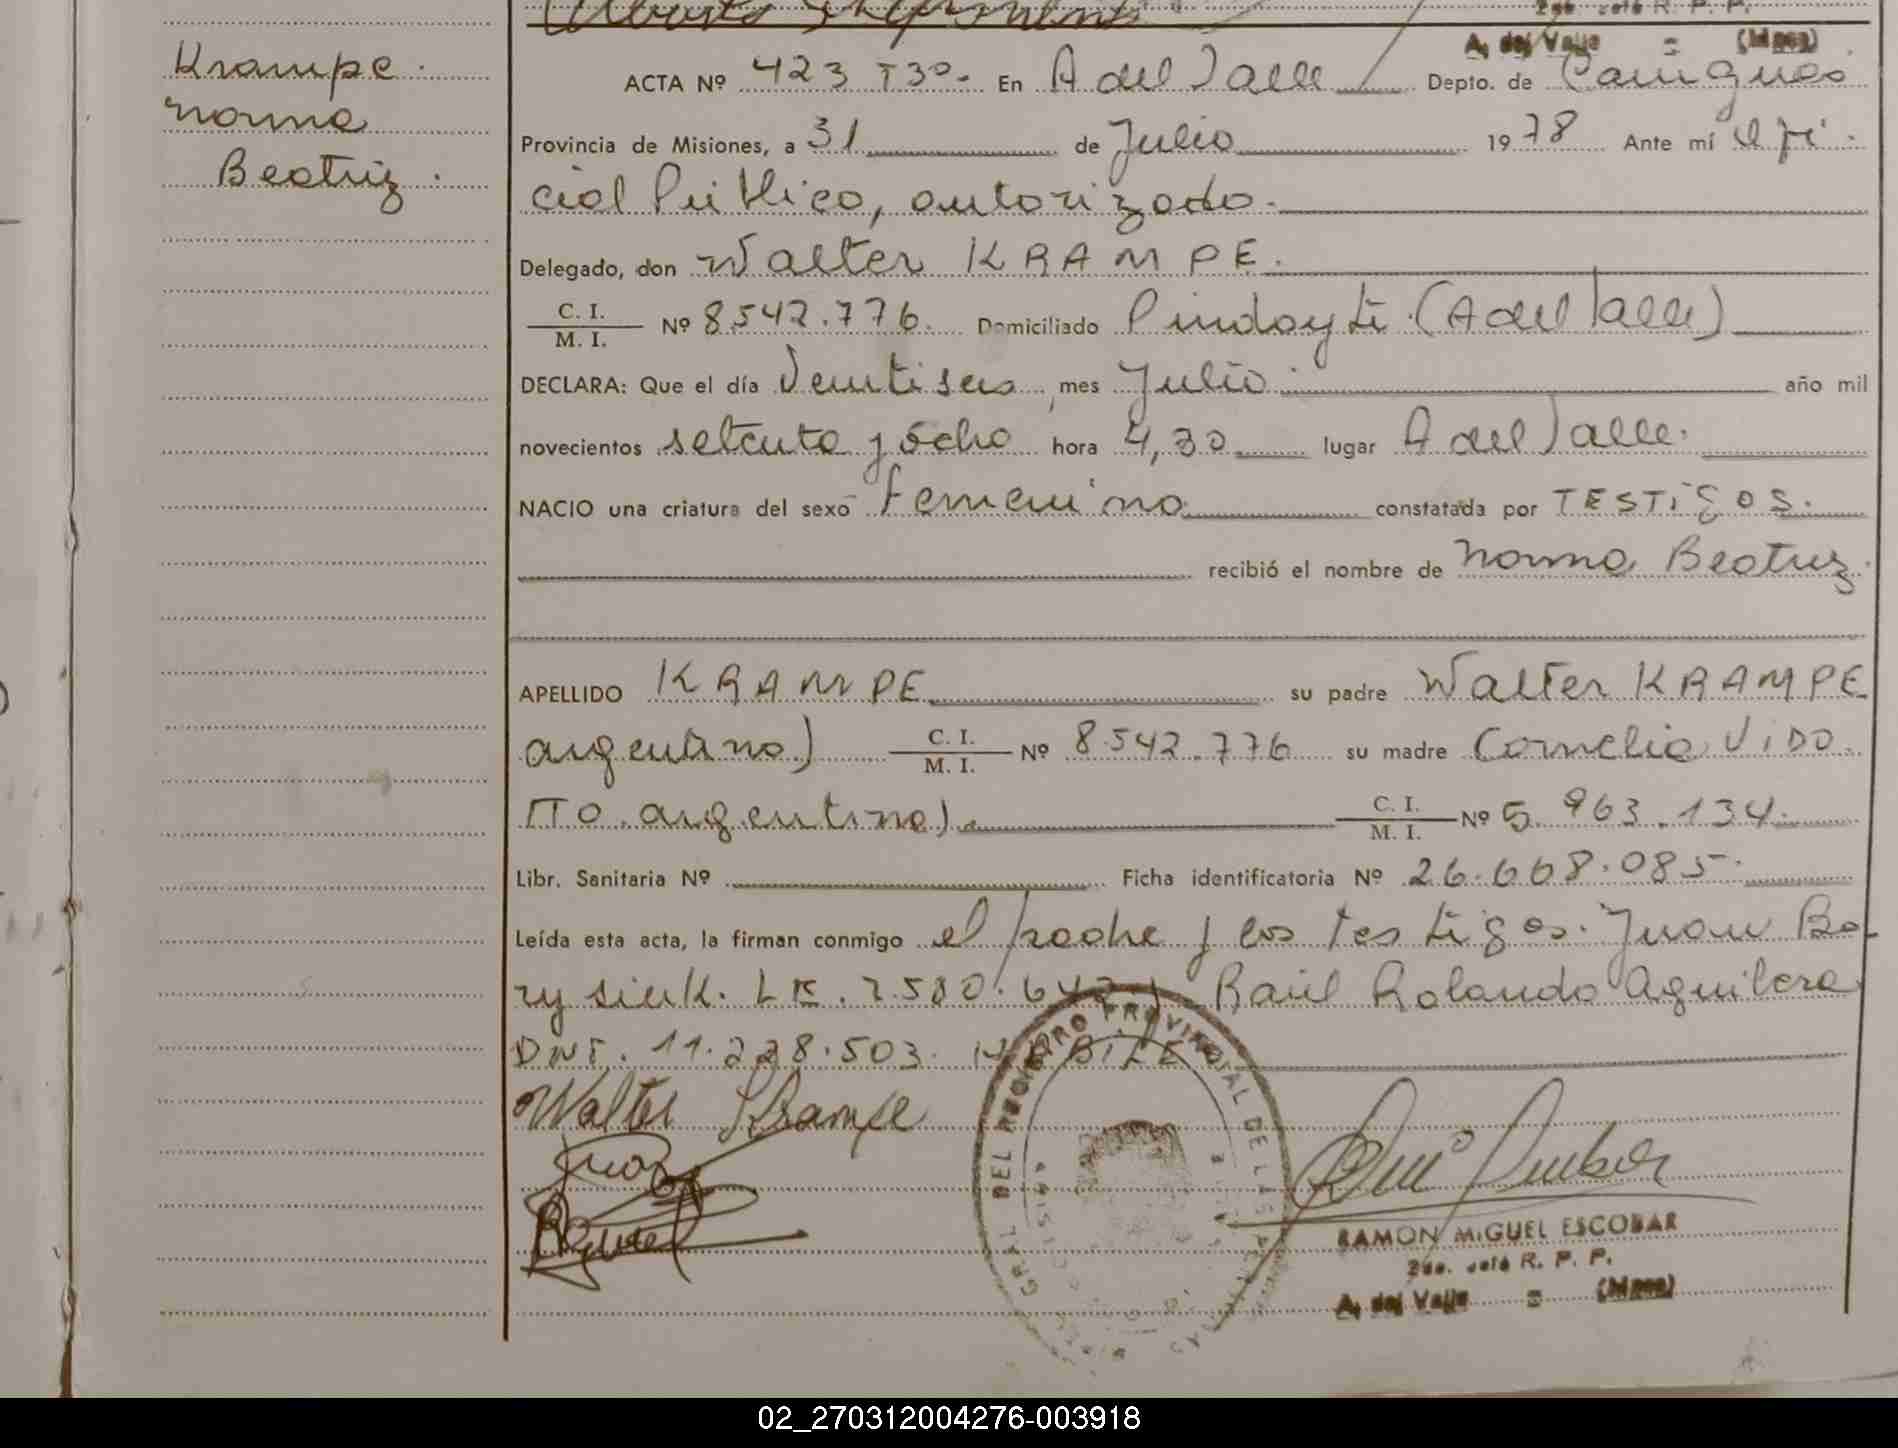 2do. Jefe R. P. P.
A. del Valle = (Mnes)
Krampe.
Norma
Beatriz.
ACTA Nº 423 Tº3º. En A del Valle Depto. de Cainguas
Provincia de Misiones, a 31 de Julio 1978 Ante mí Ofi-
cial Público, autorizado.
Delegado, don Walter KRAMPE.
C. I. / M. I. Nº 8.542.776. Domiciliado Pindayti (A del Valle)
DECLARA: Que el día Veintiseis mes Julio año mil
novecientos setenta y ocho hora 4,30 lugar A del Valle.
NACIO una criatura del sexo femenino constatada por TESTIGOS.
recibió el nombre de Norma Beatriz.
APELLIDO KRAMPE su padre Walter KRAMPE
argentino) C. I. / M. I. Nº 8.542.776 su madre Cornelia VIDO
TTO. argentina). C. I. / M. I. Nº 5.963.134.
Libr. Sanitaria Nº Ficha identificatoria Nº 26.668.085.
Leída esta acta, la firman conmigo el padre y los testigos. Juan Bo-
rysiuk. LE. 7.580.642 y Raúl Rolando Aguilera
DNI. 11.228.503. HABILES
Walter Krampe
GRAL. DEL REGISTRO PROVINCIAL DE LAS PERSONAS
RAMON MIGUEL ESCOBAR
2do. Jefe R. P. P.
A. del Valle = (Mnes)
02_270312004276-003918